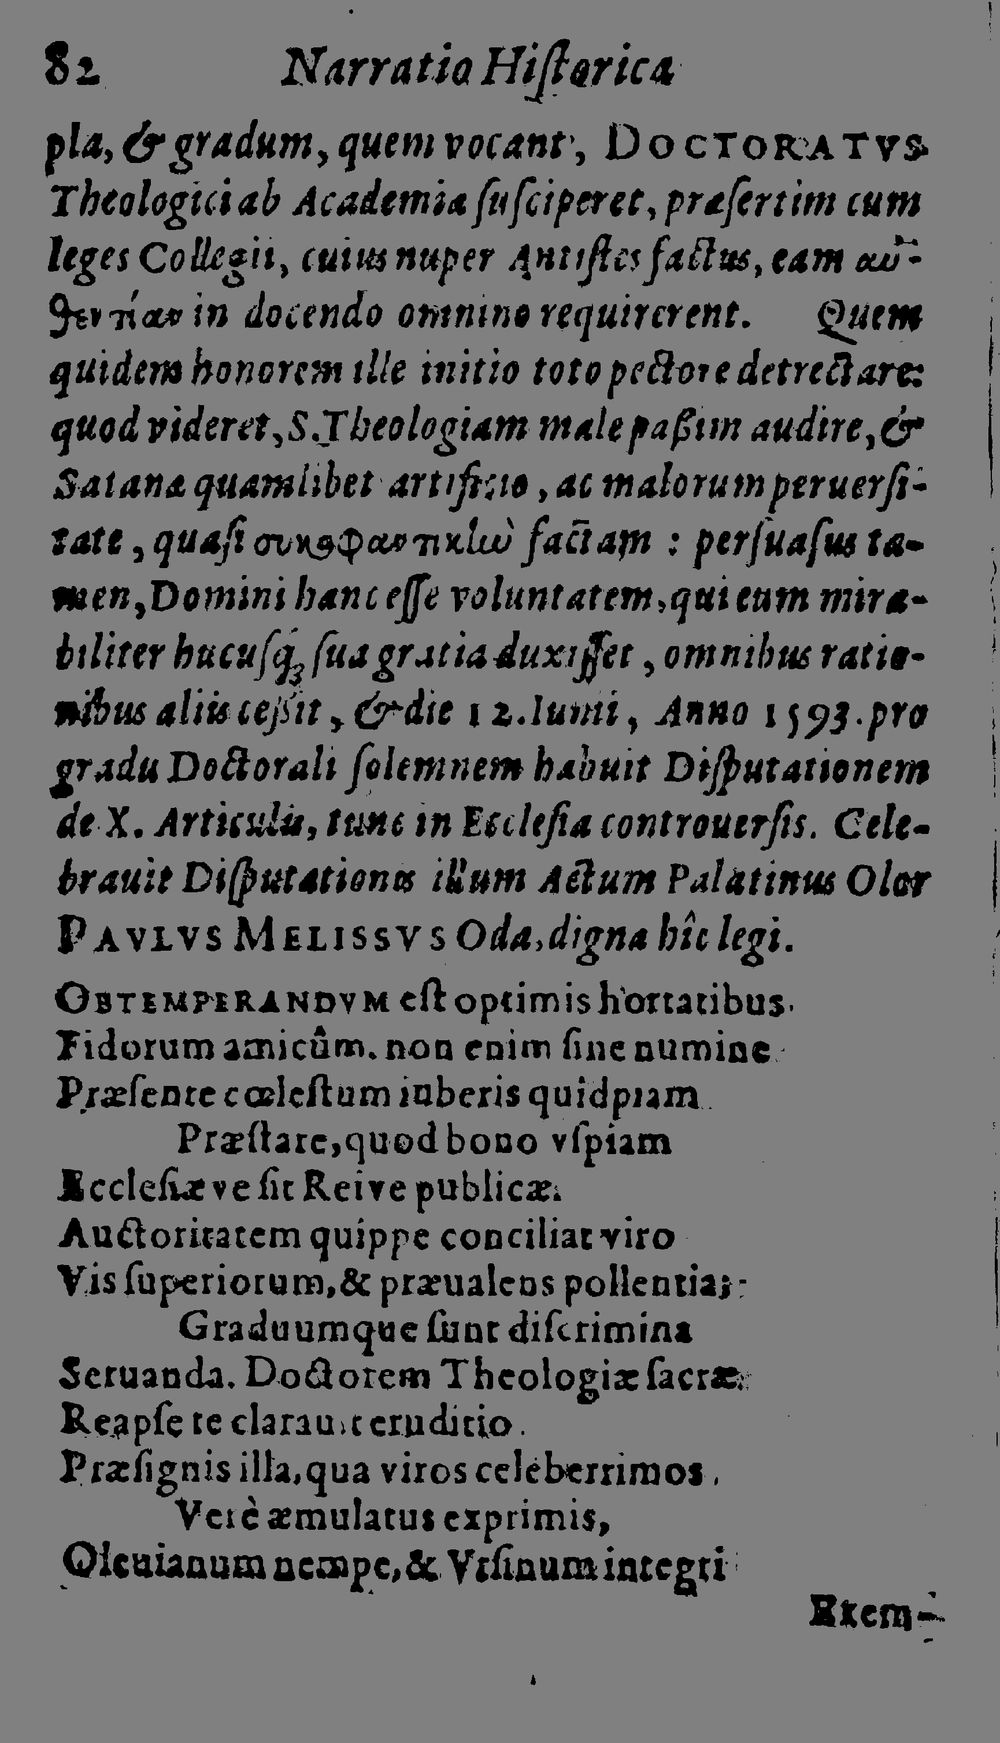 82 Narratio Hiſtorica
pla, & gradum, quem vocant, DOCTORATVS
Theologici ab Academia ſuſciperet, præſertim cum
leges Collegii, cuius nuper Antiſtes factus, eam αὐ-
θεντίαν in docendo omnino requirerent. Quem
quidem honorem ille initio toto pectore detrectare:
quod videret, S. Theologiam male paßim audire, &
Satanæ quamlibet artificio, ac malorum peruerſi-
tate, quaſi συκοφαντικὴν factam : perſuaſus ta-
men, Domini hanc eſſe voluntatem, qui eum mira-
biliter hucuſq́ꝫ ſua gratia duxiſſet, omnibus ratio-
nibus aliis ceßit, & die 12. Iunii, Anno 1593. pro
gradu Doctorali ſolemnem habuit Diſputationem
de X. Articulis, tunc in Eccleſia controuerſis. Cele-
brauit Diſputationis illum Actum Palatinus Olor
PAVLVS MELISSVS Oda, digna hîc legi.
OBTEMPERANDVM eſt optimis hortatibus
Fidorum amicûm. non enim ſine numine
Præſente cœleſtum iuberis quidpiam
Præſtare, quod bono vſpiam
Eccleſiæ ve ſit Reive publicæ.
Auctoritatem quippe conciliat viro
Vis ſuperiorum, & præualens pollentia;
Graduumque ſunt diſcrimina
Seruanda. Doctorem Theologiæ ſacræ
Reapſe te clarauit eruditio
Præſignis illa, qua viros celeberrimos
Verè æmulatus exprimis,
Oleuianum nempe, & Vrſinum integri
Exem-